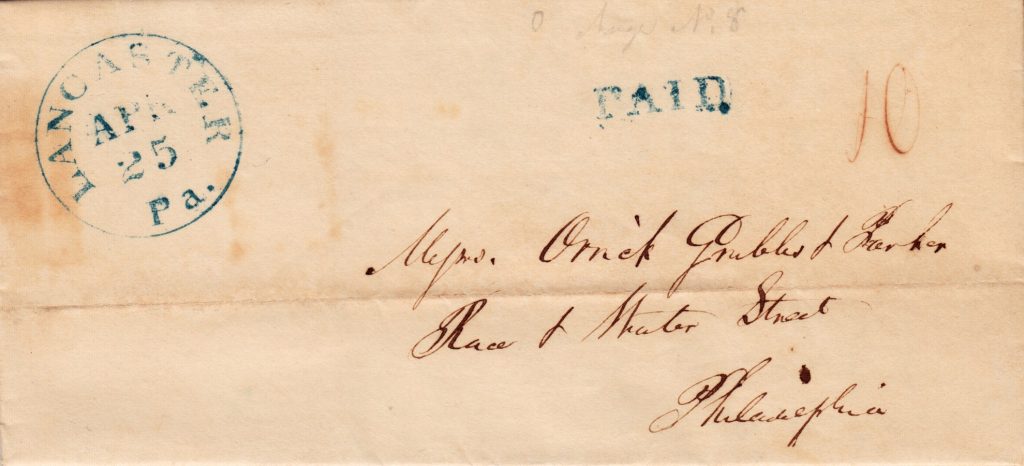 LANCASTER
APR
25
Pa.
PAID.
10
Messrs. Orrick Grubbs & Parker
Race & Water Street
Philadelphia